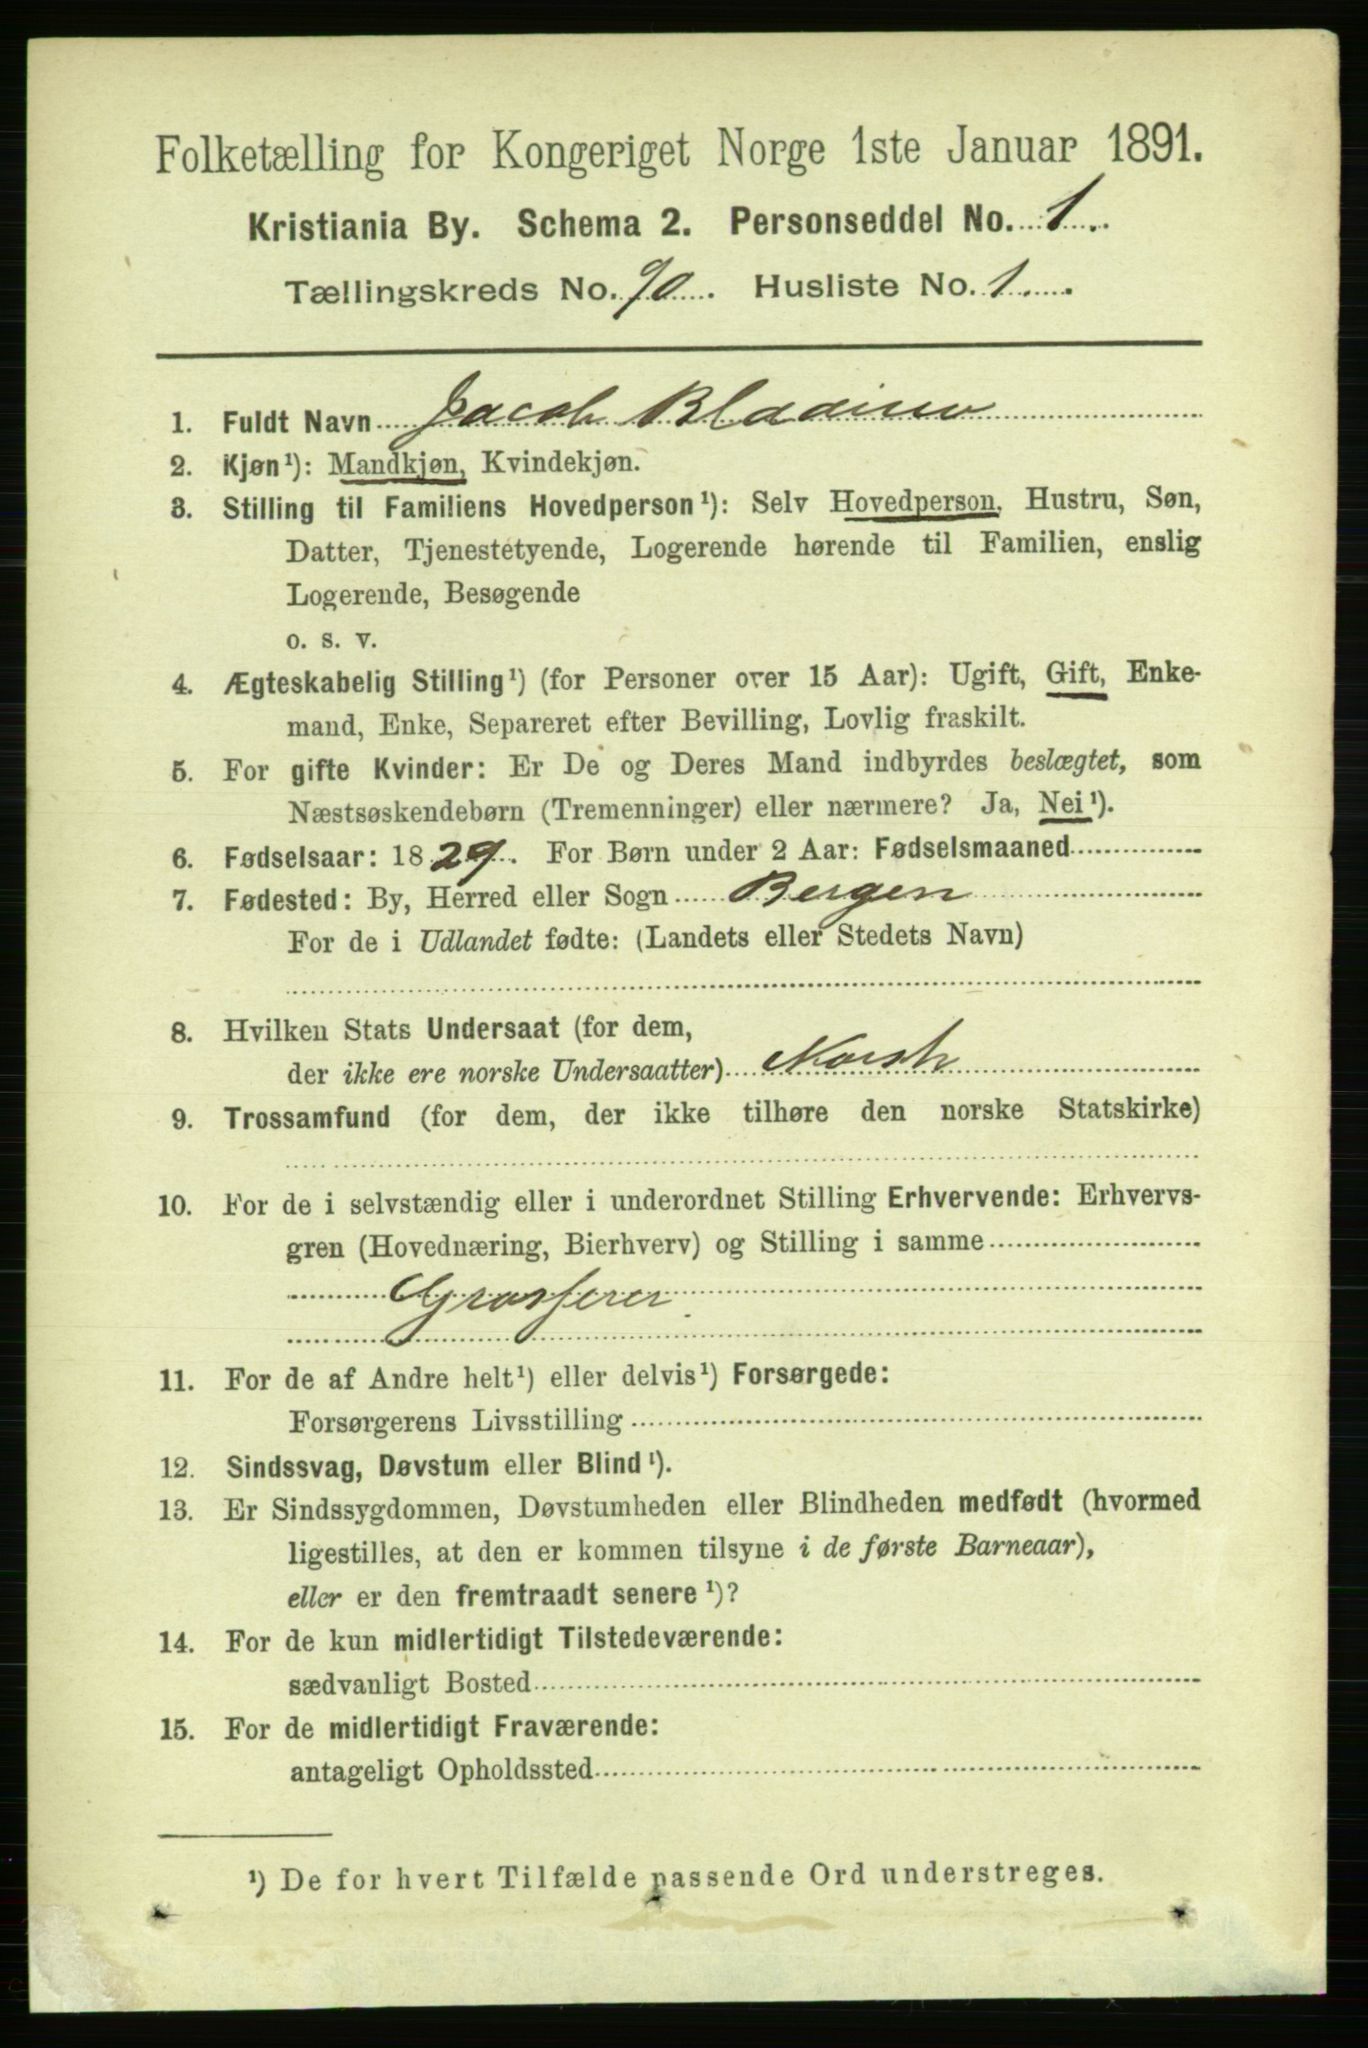 Folketælling for Kongeriget Norge 1ste Januar 1891.
Kristiania By. Schema 2. Personseddel No. 1.
Tællingskreds No. 90. Husliste No. 1
1. Fuldt Navn Jacob
2. Kjøn¹): Mandkjøn, Kvindekjøn.
3. Stilling til Familiens Hovedperson¹): Selv Hovedperson, Hustru, Søn,
Datter, Tjenestetyende, Logerende hørende til Familien, enslig
Logerende, Besøgende
o. s. v.
4. Ægteskabelig Stilling¹) (for Personer over 15 Aar): Ugift, Gift, Enke-
mand, Enke, Separeret efter Bevilling, Lovlig fraskilt.
5. For gifte Kvinder: Er De og Deres Mand indbyrdes beslægtet, som
Næstsøskendebørn (Tremenninger) eller nærmere? Ja, Nei¹).
6. Fødselsaar: 1829. For Børn under 2 Aar: Fødselsmaaned
7. Fødested: By, Herred eller Sogn Bergen
For de i Udlandet fødte: (Landets eller Stedets Navn)
8. Hvilken Stats Undersaat (for dem,
der ikke ere norske Undersaatter) Norsk
9. Trossamfund (for dem, der ikke tilhøre den norske Statskirke)
10. For de i selvstændig eller i underordnet Stilling Erhvervende: Erhvervs-
gren (Hovednæring, Bierhverv) og Stilling i samme
Grosserer.
11. For de af Andre helt¹) eller delvis¹) Forsørgede:
Forsørgerens Livsstilling
12. Sindssvag, Døvstum eller Blind¹).
13. Er Sindssygdommen, Døvstumheden eller Blindheden medfødt (hvormed
ligestilles, at den er kommen tilsyne i de første Barneaar),
eller er den fremtraadt senere¹)?
14. For de kun midlertidigt Tilstedeværende:
sædvanligt Bosted
15. For de midlertidigt Fraværende:
antageligt Opholdssted
¹) De for hvert Tilfælde passende Ord understreges.